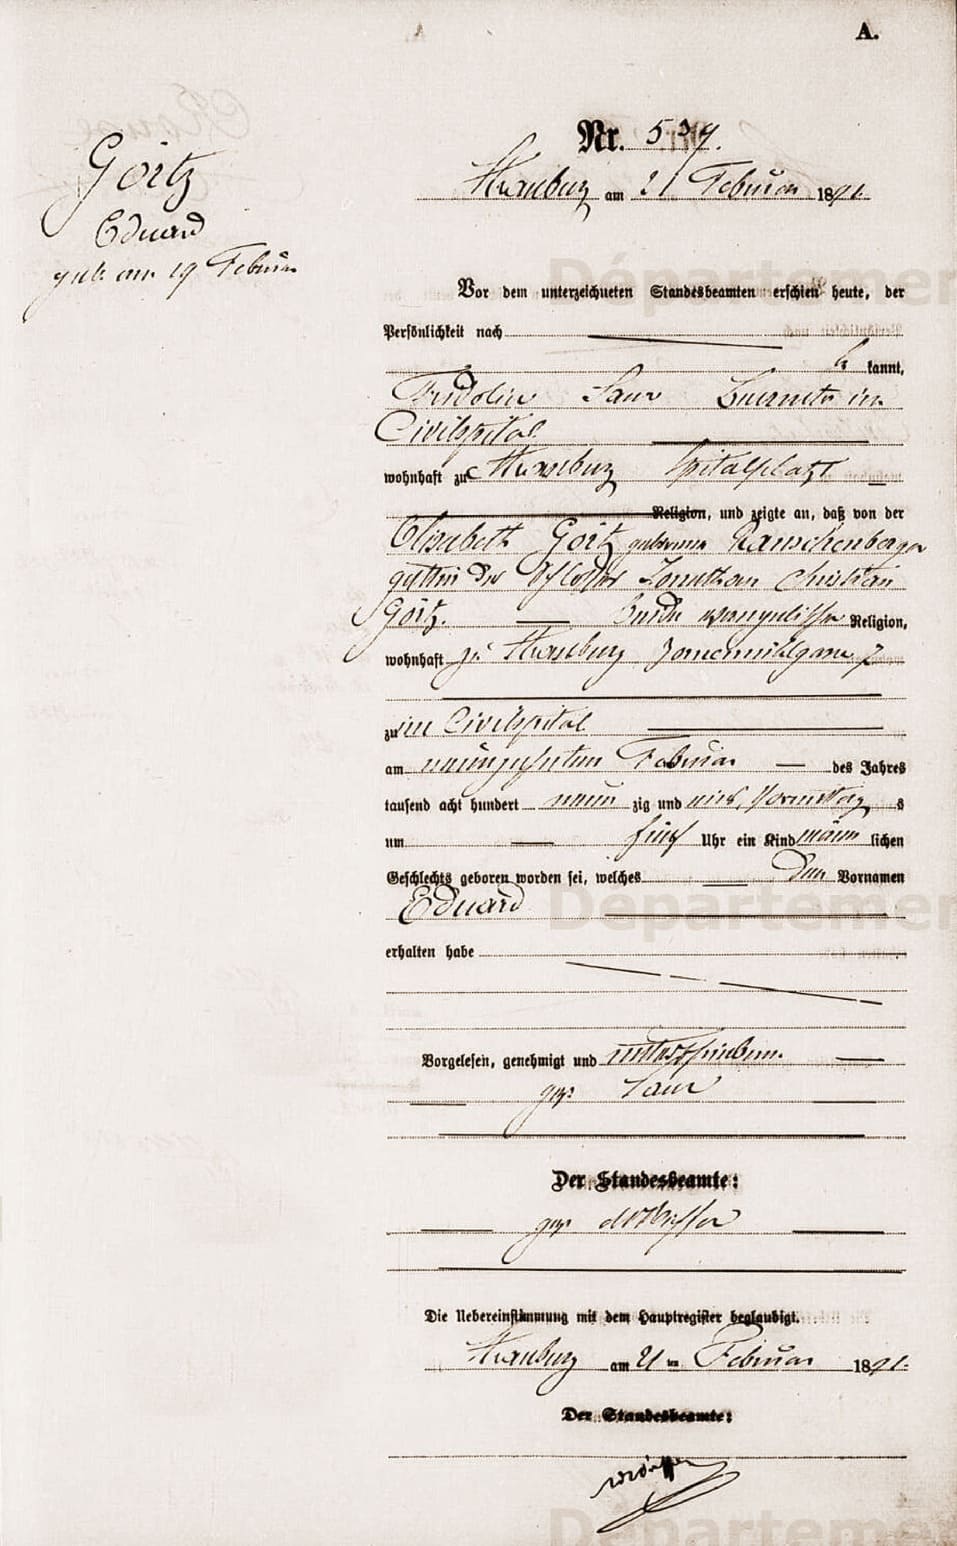 A.
Nr. 539.
Straßburg am 21 Februar 1891.
Goertz
Eduard
geb. am 19 Februar
Vor dem unterzeichneten Standesbeamten erschien heute, der
Persönlichkeit nach
be kannt,
Fridolin Saur Beamter im
Civilspital
wohnhaft zu Strassburg Spitalplatz
Religion, und zeigte an, daß von der
Elisabeth Goertz geborenen Ramschenberger
gattin des Schlosser Jonathan Christian
Goertz. beide evangelischer Religion,
wohnhaft zu Strassburg 7
zu im Civilspital
am neunzehnten Februar des Jahres
tausend acht hundert neun zig und eins, Vormittag s
um fünf Uhr ein Kind männ lichen
Geschlechts geboren worden sei, welches den Vornamen
Eduard
erhalten habe
Vorgelesen, genehmigt und unterschrieben.
gez. Saur
Der Standesbeamte:
gez.
Die Uebereinstimmung mit dem Hauptregister beglaubigt.
Straßburg am 21 ten Februar 1891.
Der Standesbeamte:
Départemen
Départemen
Départemen